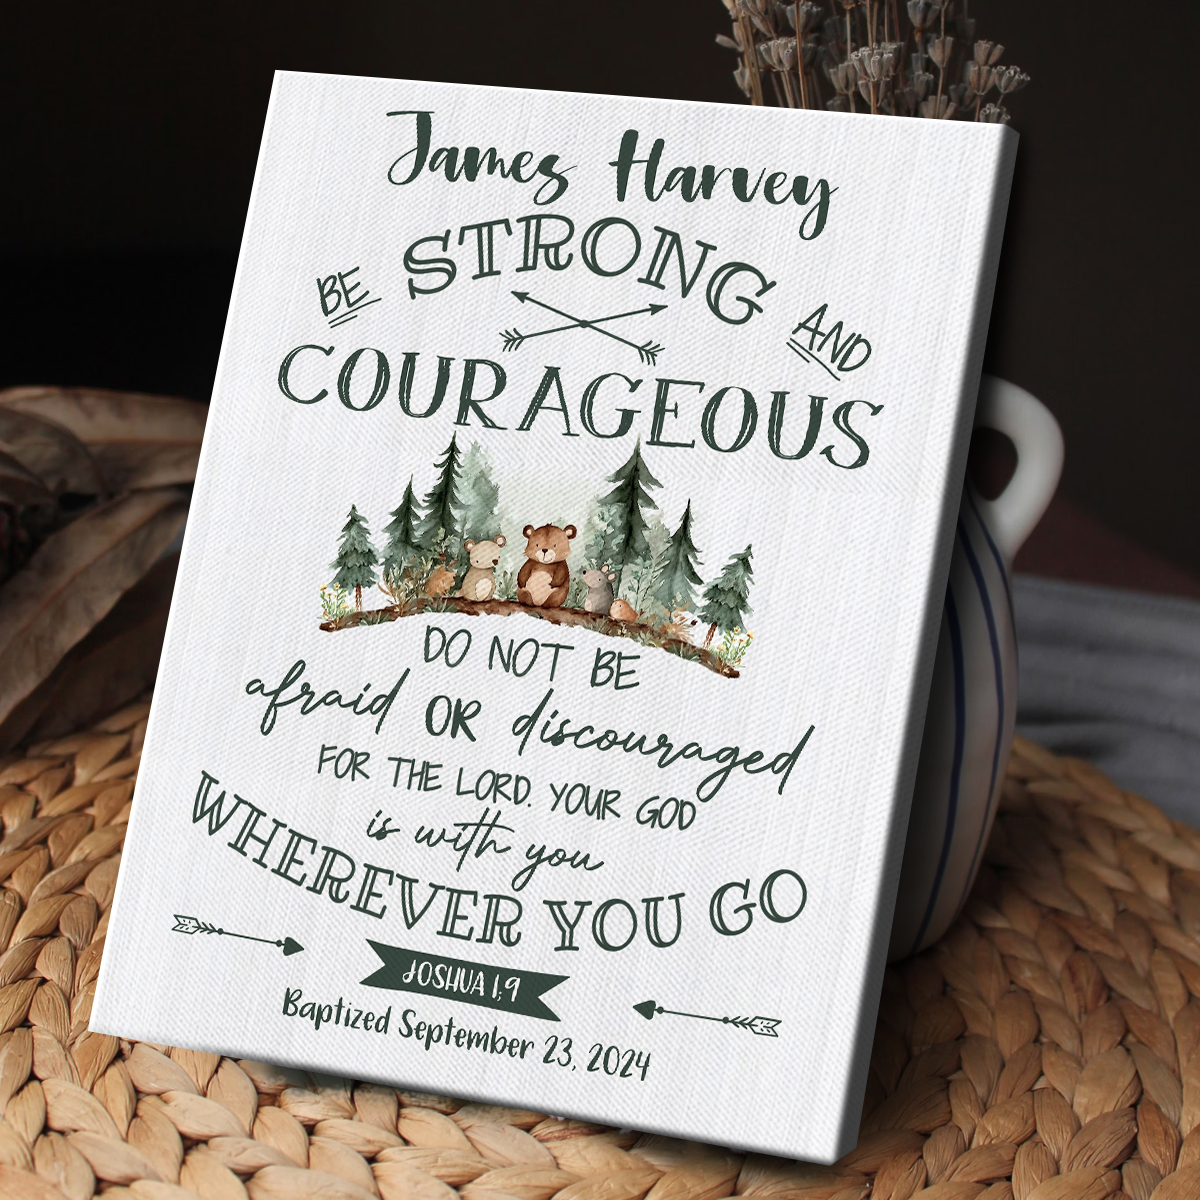 James Harvey
BE STRONG AND
COURAGEOUS
DO NOT BE
afraid OR discouraged
FOR THE LORD. YOUR GOD
is with you
WHEREVER YOU GO
JOSHUA 1;9
Baptized September 23, 2024